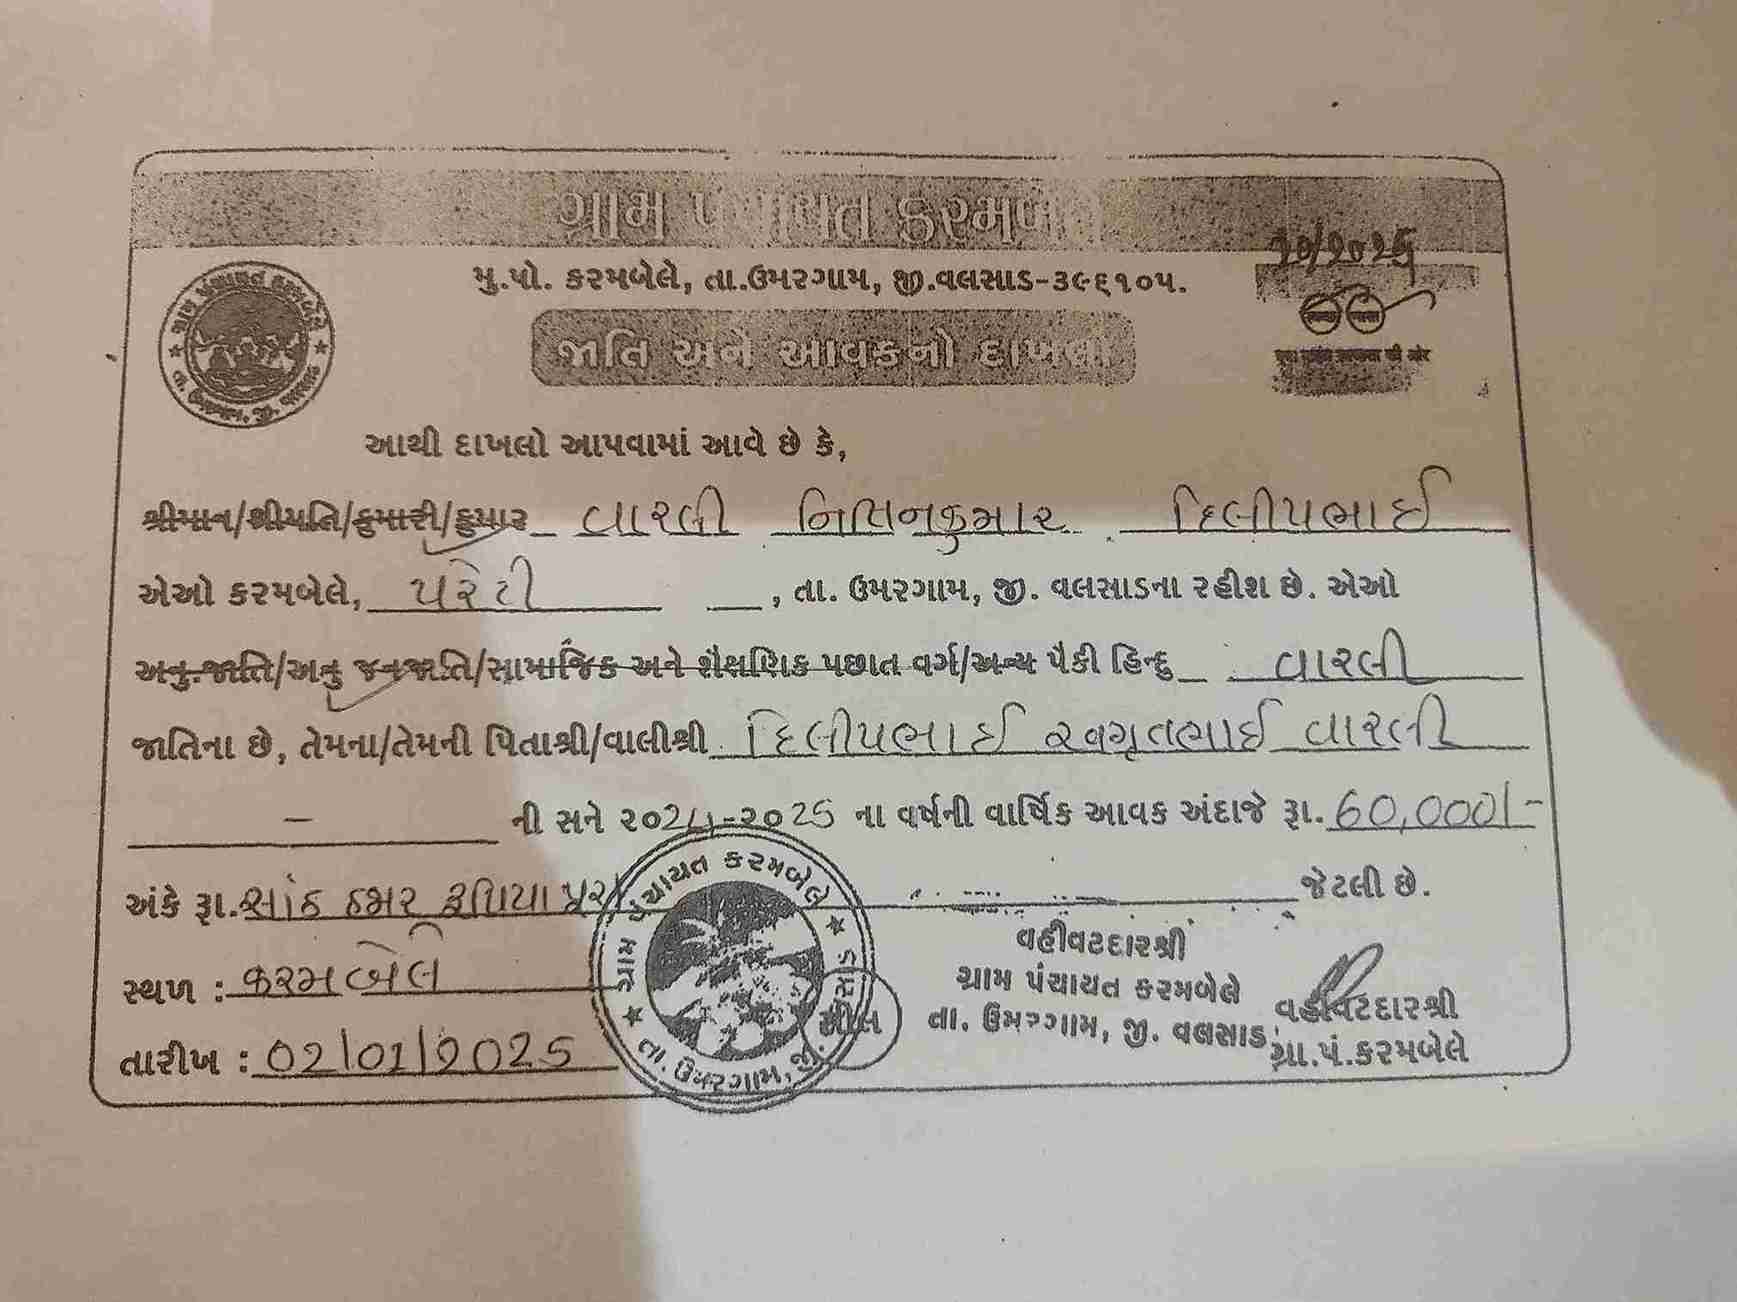 ગ્રામ પંચાયત કરમબેલે
મુ.પો. કરમબેલે, તા.ઉમરગામ, જી.વલસાડ-૩૯૬૧૦૫.
જાતિ અને આવકનો દાખલો
આથી દાખલો આપવામાં આવે છે કે,
શ્રીમાન/શ્રીમતિ/કુમારી/કુમાર વારલી નિતિનકુમાર દિલીપભાઈ
એઓ કરમબેલે, પરેટી, તા. ઉમરગામ, જી. વલસાડના રહીશ છે. એઓ
અનુ.જાતિ/અનુ જનજાતિ/સામાજિક અને શૈક્ષણિક પછાત વર્ગ/અન્ય પૈકી હિન્દુ વારલી
જાતિના છે, તેમના/તેમની પિતાશ્રી/વાલીશ્રી દિલીપભાઈ વારલી
- ની સને ૨૦24-૨૦25 ના વર્ષની વાર્ષિક આવક અંદાજે રૂા. 60,000/-
અંકે રૂા. સાંઠ હજાર રૂપિયા પુરા જેટલી છે.
સ્થળ : કરમબેલે
તારીખ : 02/01/2025
ગ્રામ પંચાયત કરમબેલે
તા. ઉમરગામ, જી. વલસાડ
સીલ
વહીવટદારશ્રી
ગ્રામ પંચાયત કરમબેલે
તા. ઉમરગામ, જી. વલસાડ
વહીવટદારશ્રી
ગ્રા.પં.કરમબેલે